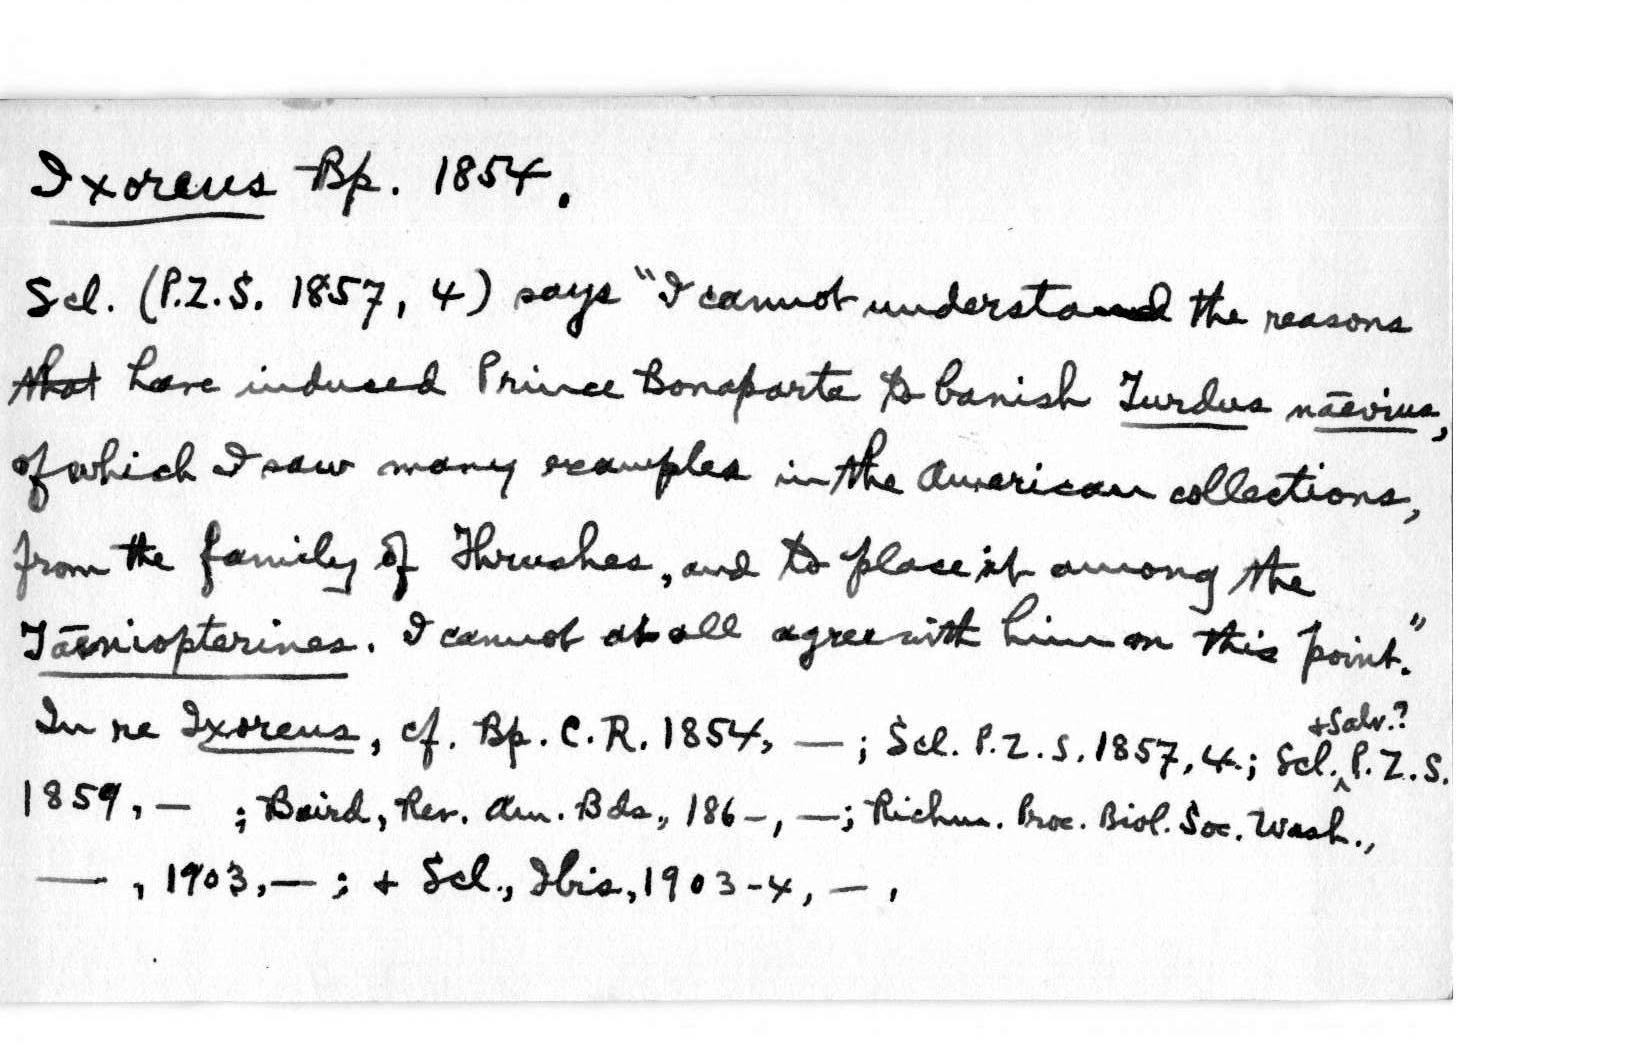 Ixoreus Bp. 1854.
Scl. (P.Z.S. 1857, 4) says "I cannot understand the reasons
that have induced Prince Bonaparte to banish Turdus naevius,
of which I saw many examples in the American collections,
from the family of Thrushes, and to place it among the
Taeniopterines. I cannot at all agree with him on this point."
In re Ixoreus, cf. Bp. C.R. 1854, — ; Scl. P.Z.S. 1857, 4.; Scl. + Salv.? P.Z.S.
1859, — ; Baird, Rev. Am. Bds., 186-, —; Richm. Proc. Biol. Soc. Wash.,
— , 1903, — ; + Scl., Ibis, 1903-4, — ,